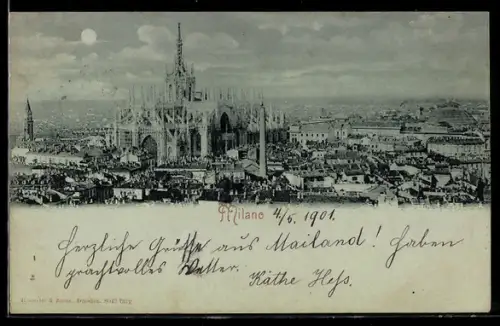 Milano
4/5. 1901.
Herzliche Grüße aus Mailand! Haben
prachtvolles Wetter.
Käthe Hess.
1
2